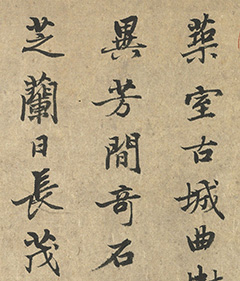 築室古城曲
異芳間奇石
芝蘭日長茂